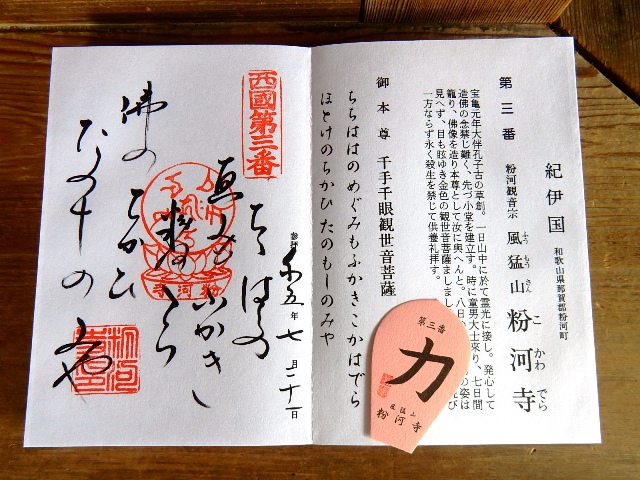 第三番
紀伊国
和歌山県那賀郡粉河町
粉河観音宗
風猛山
ふうもうさん
粉河寺
こかわでら
宝亀元年大伴孔子古の草創。一日山中に於て霊光に接し。発心して
造佛の念禁じ難く、先づ小堂を建立す。時に童男大士来り、七日間
籠り、佛像を造り本尊として汝に與へんと。八日
の姿は
見へず、目も眩ゆき金色の観世音菩薩ましまし
び
一方ならず永く殺生を禁じて供養礼拝す。
御本尊 千手千眼観世音菩薩
ちちははのめぐみもふかきこかはでら
ほとけのちかひたのもしのみや
第三番
力
風猛山
粉河寺
西國第三番
参拝
五年七月二十一日
ちゝはゝの
恵みもふかき
粉河でら
佛の
ちかひ
たのもしの
みや
粉河寺